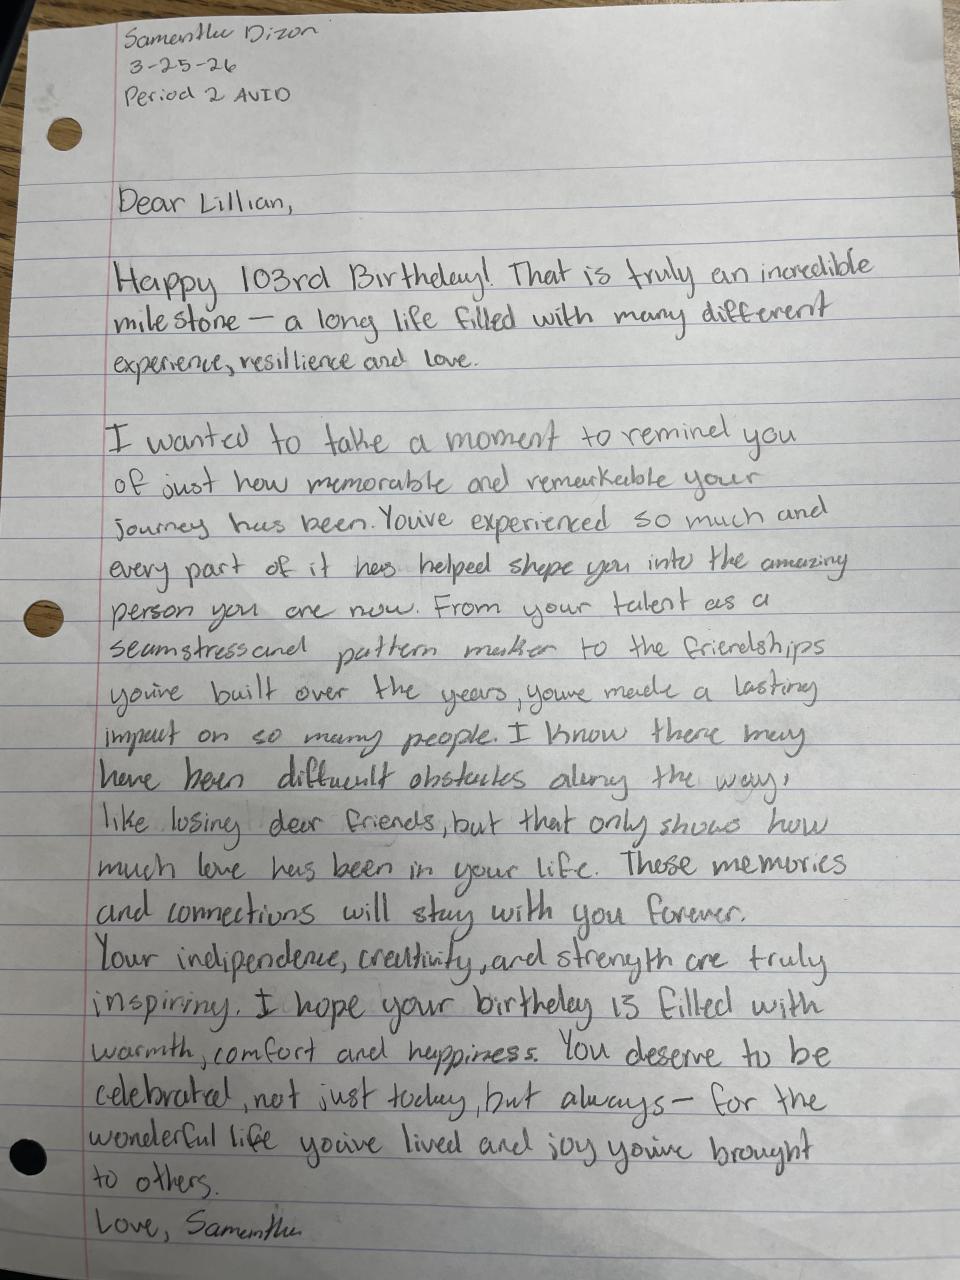 Samantha Dizon
3-25-26
Period 2 AVID
Dear Lillian,
Happy 103rd Birthday! That is truly an incredible
milestone — a long life filled with many different
experience, resillience and love.
I wanted to take a moment to remind you
of just how memorable and remarkable your
journey has been. You've experienced so much and
every part of it has helped shape you into the amazing
person you are now. From your talent as a
seamstress and pattern maker to the friendships
you've built over the years, you've made a lasting
impact on so many people. I know there may
have been diffucult obstacles along the way,
like losing dear friends, but that only shows how
much love has been in your life. These memories
and connections will stay with you forever.
Your indipendence, creativity, and strength are truly
inspiring. I hope your birthday is filled with
warmth, comfort and happiness. You deserve to be
celebrated, not just today, but always — for the
wonderful life you've lived and joy you've brought
to others.
Love, Samantha